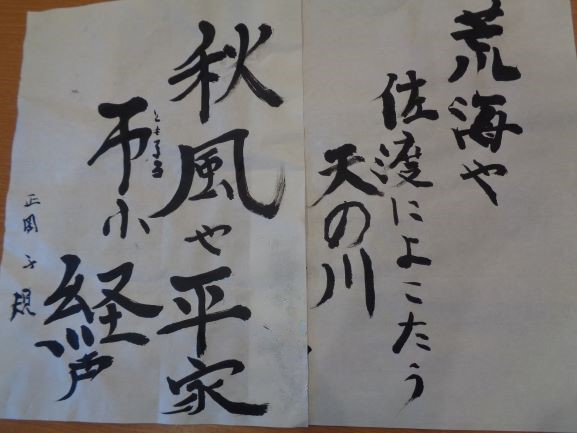 荒海や
佐渡によこたう
天の川
秋風や平家
吊ふ経の声
正岡子規